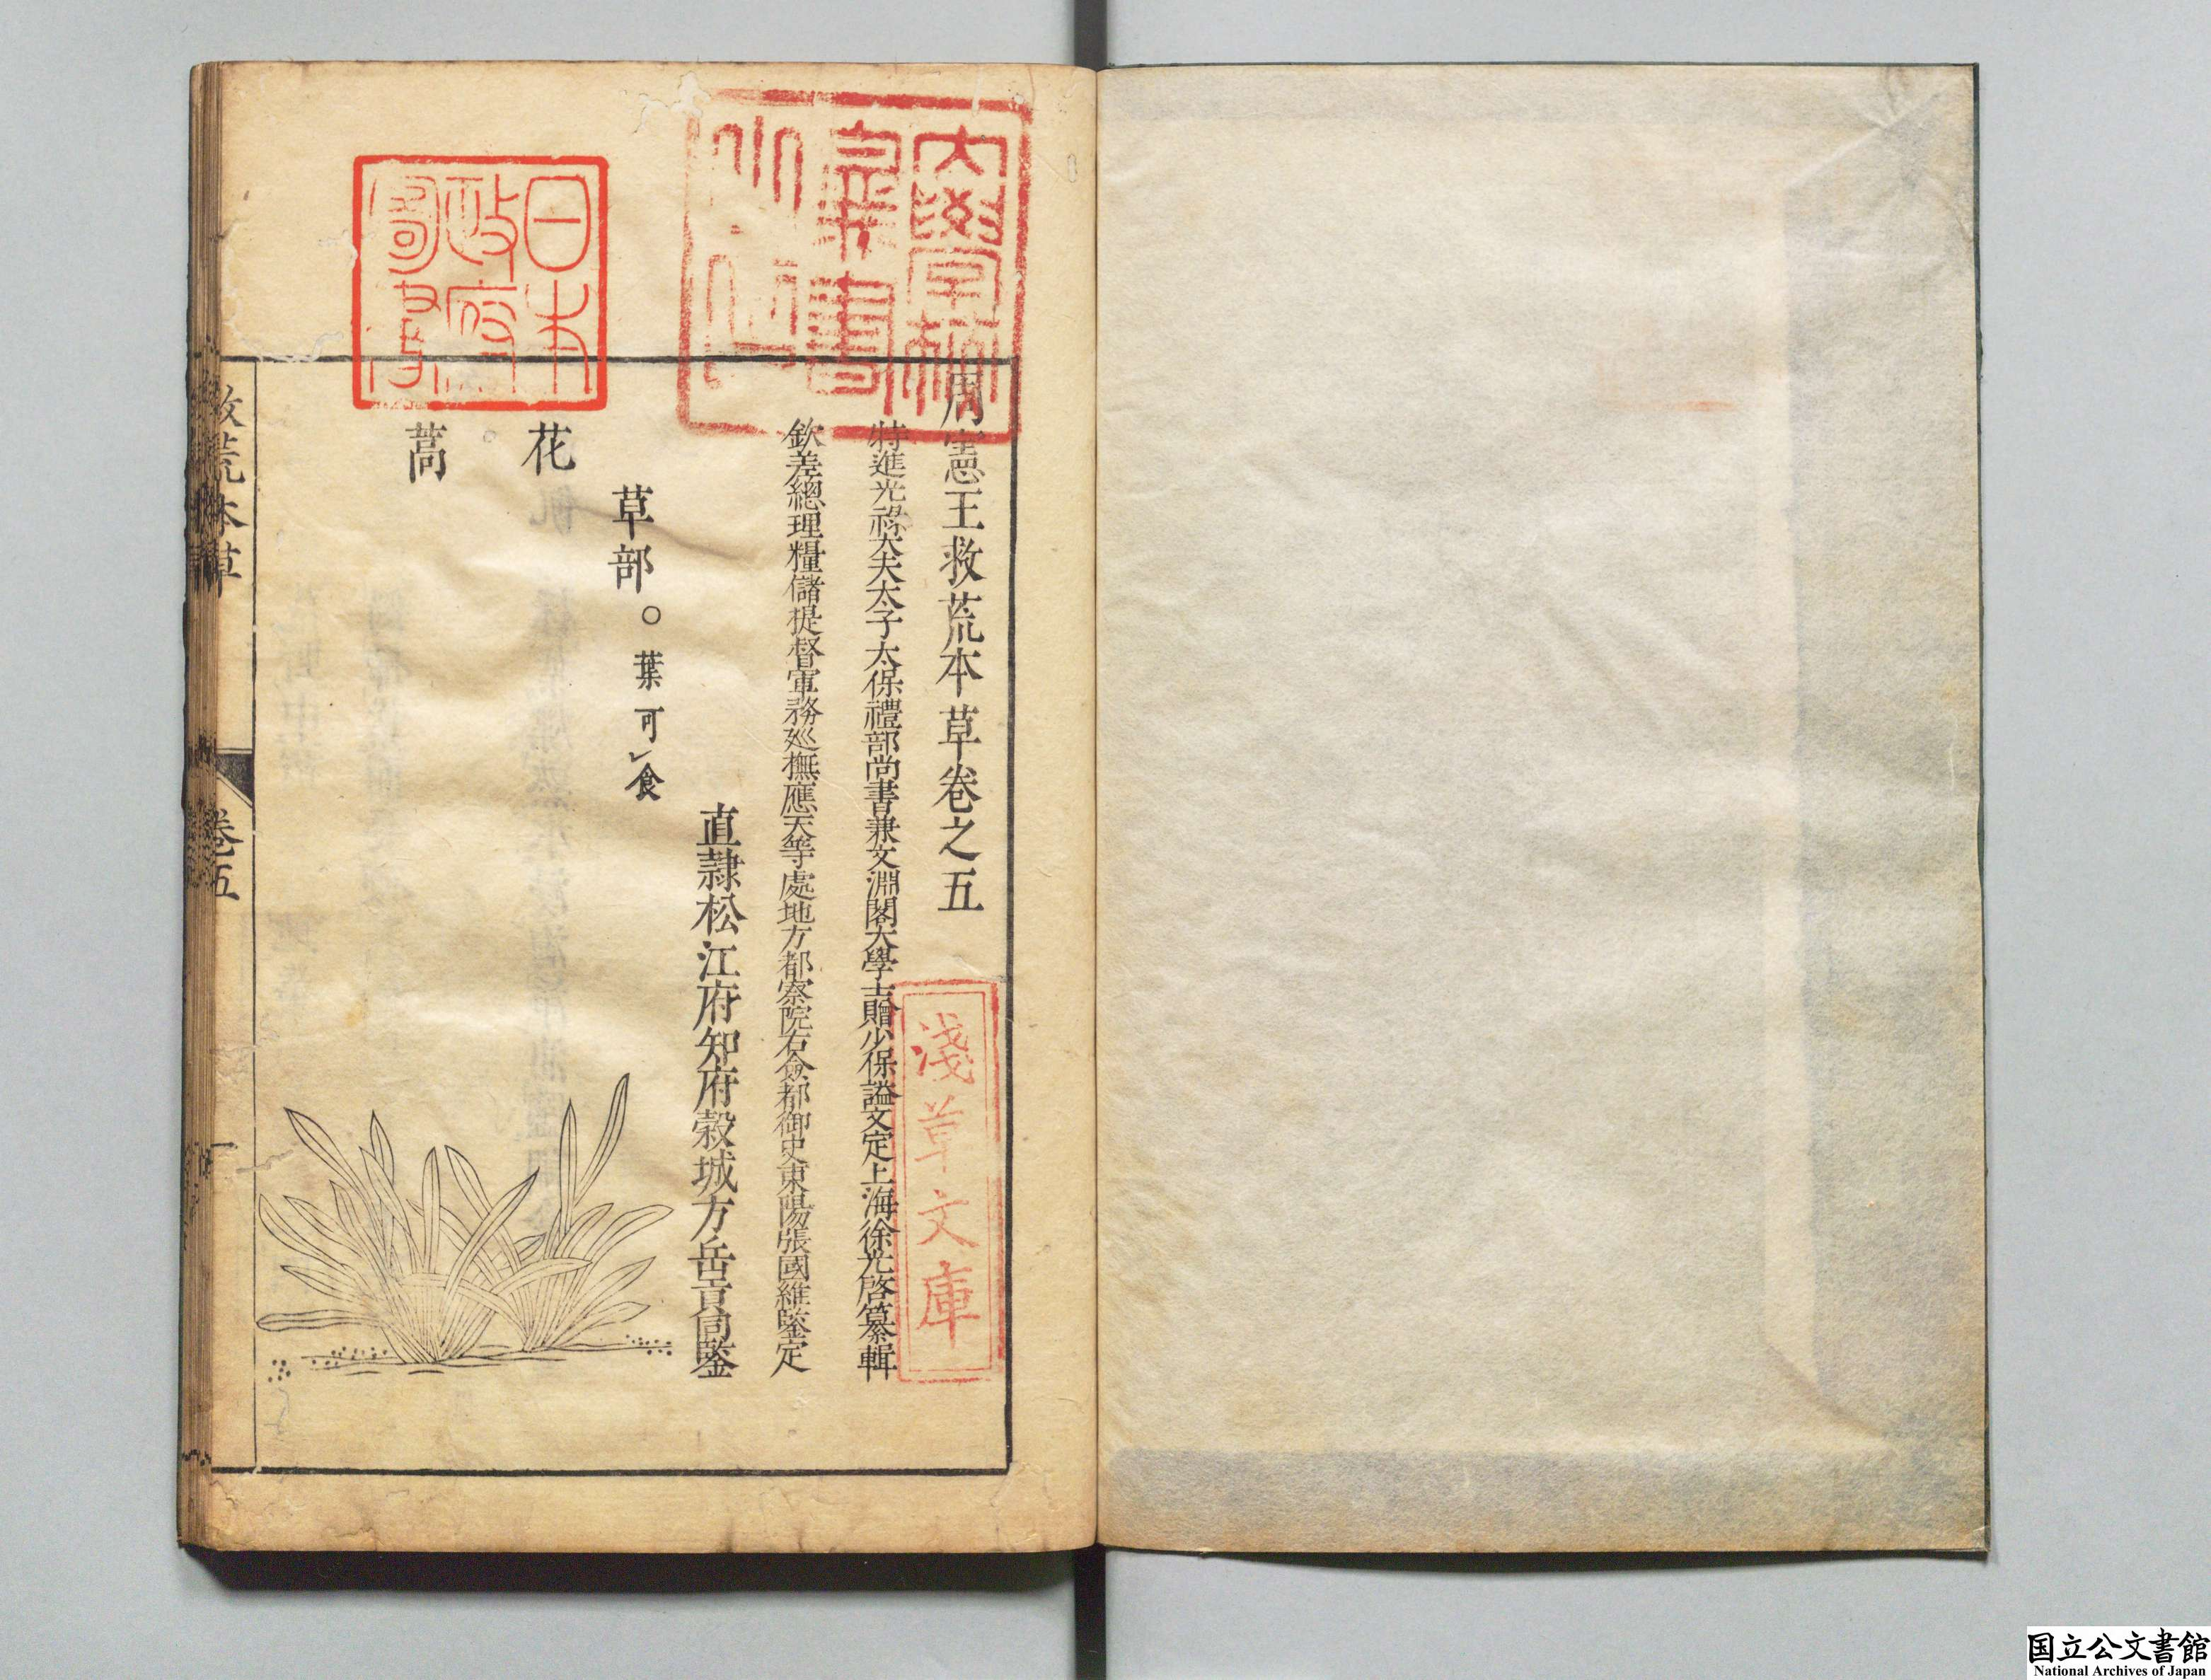 周憲王救荒本草卷之五
特進光祿大夫太子太保禮部尚書兼文淵閣大學士贈少保謚文定上海徐光啓纂輯
欽差總理糧儲提督軍務巡撫應天等處地方都察院右僉都御史東陽張國維鑒定
直隸松江府知府穀城方岳貢同鑒
草部○葉可食
花
蒿
救荒本草 卷五 一
淺草文庫
日本
政府
圖書
国立公文書館
National Archives of Japan